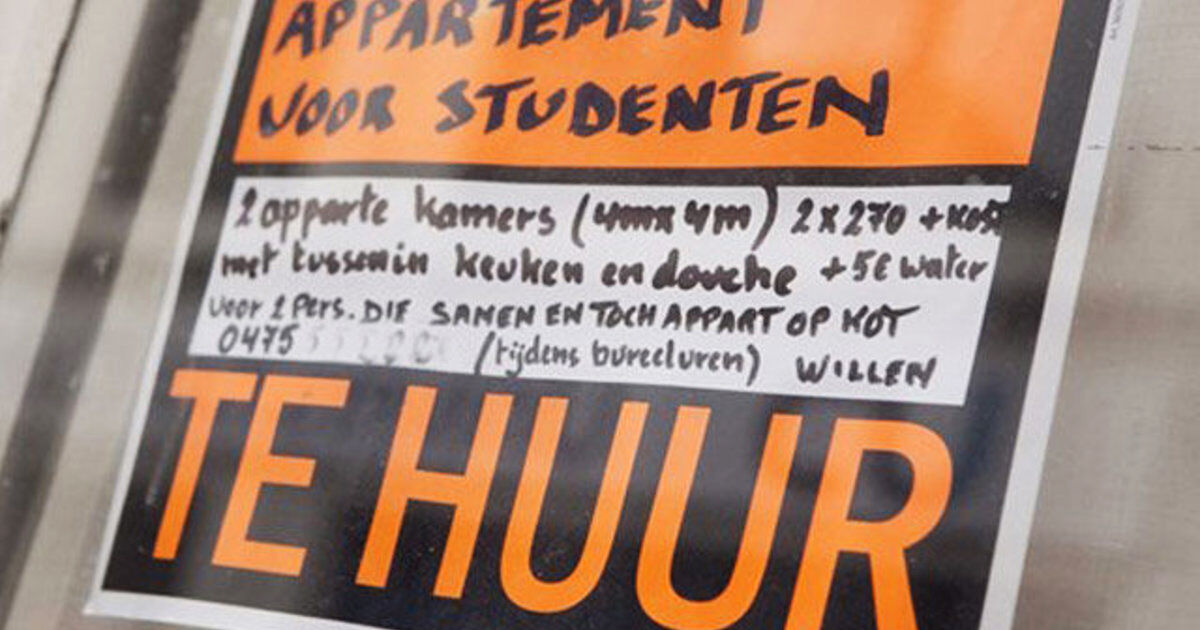 APPARTEMENT
VOOR STUDENTEN
2 apparte kamers (4m x 4m) 2 x 270 + Kost
met tussenin keuken en douche + 5€ water
voor 2 Pers. DIE SAMEN EN TOCH APPART OP KOT
0475 (tijdens bureeluren) WILLEN
TE HUUR